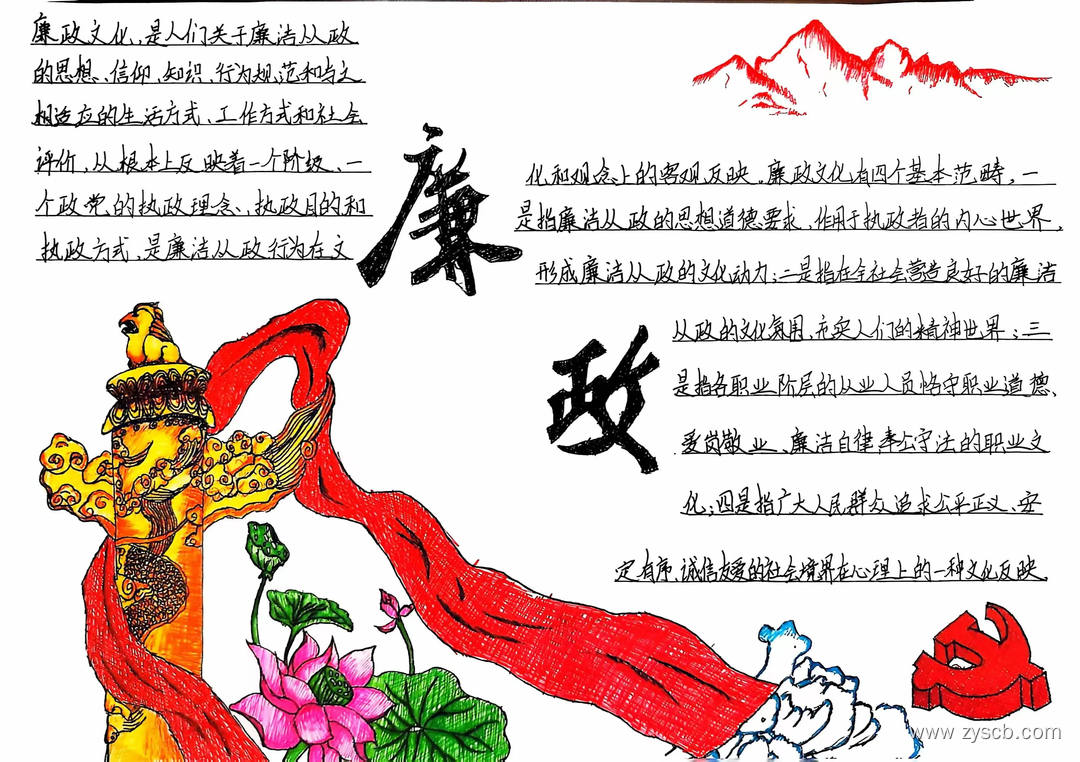 廉政文化,是人们关于廉洁从政
的思想、信仰、知识、行为规范和与之
相适应的生活方式、工作方式和社会
评价,从根本上反映着一个阶级、一
个政党的执政理念、执政目的和
执政方式,是廉洁从政行为在文
廉
政
化和观念上的客观反映。廉政文化有四个基本范畴,一
是指廉洁从政的思想道德要求,作用于执政者的内心世界,
形成廉洁从政的文化动力;二是指在全社会营造良好的廉洁
从政的文化氛围,充实人们的精神世界;三
是指各职业阶层的从业人员恪守职业道德、
爱岗敬业、廉洁自律、奉公守法的职业文
化;四是指广大人民群众追求公平正义、安
定有序、诚信友爱的社会境界在心理上的一种文化反映。
www.zyscb.com